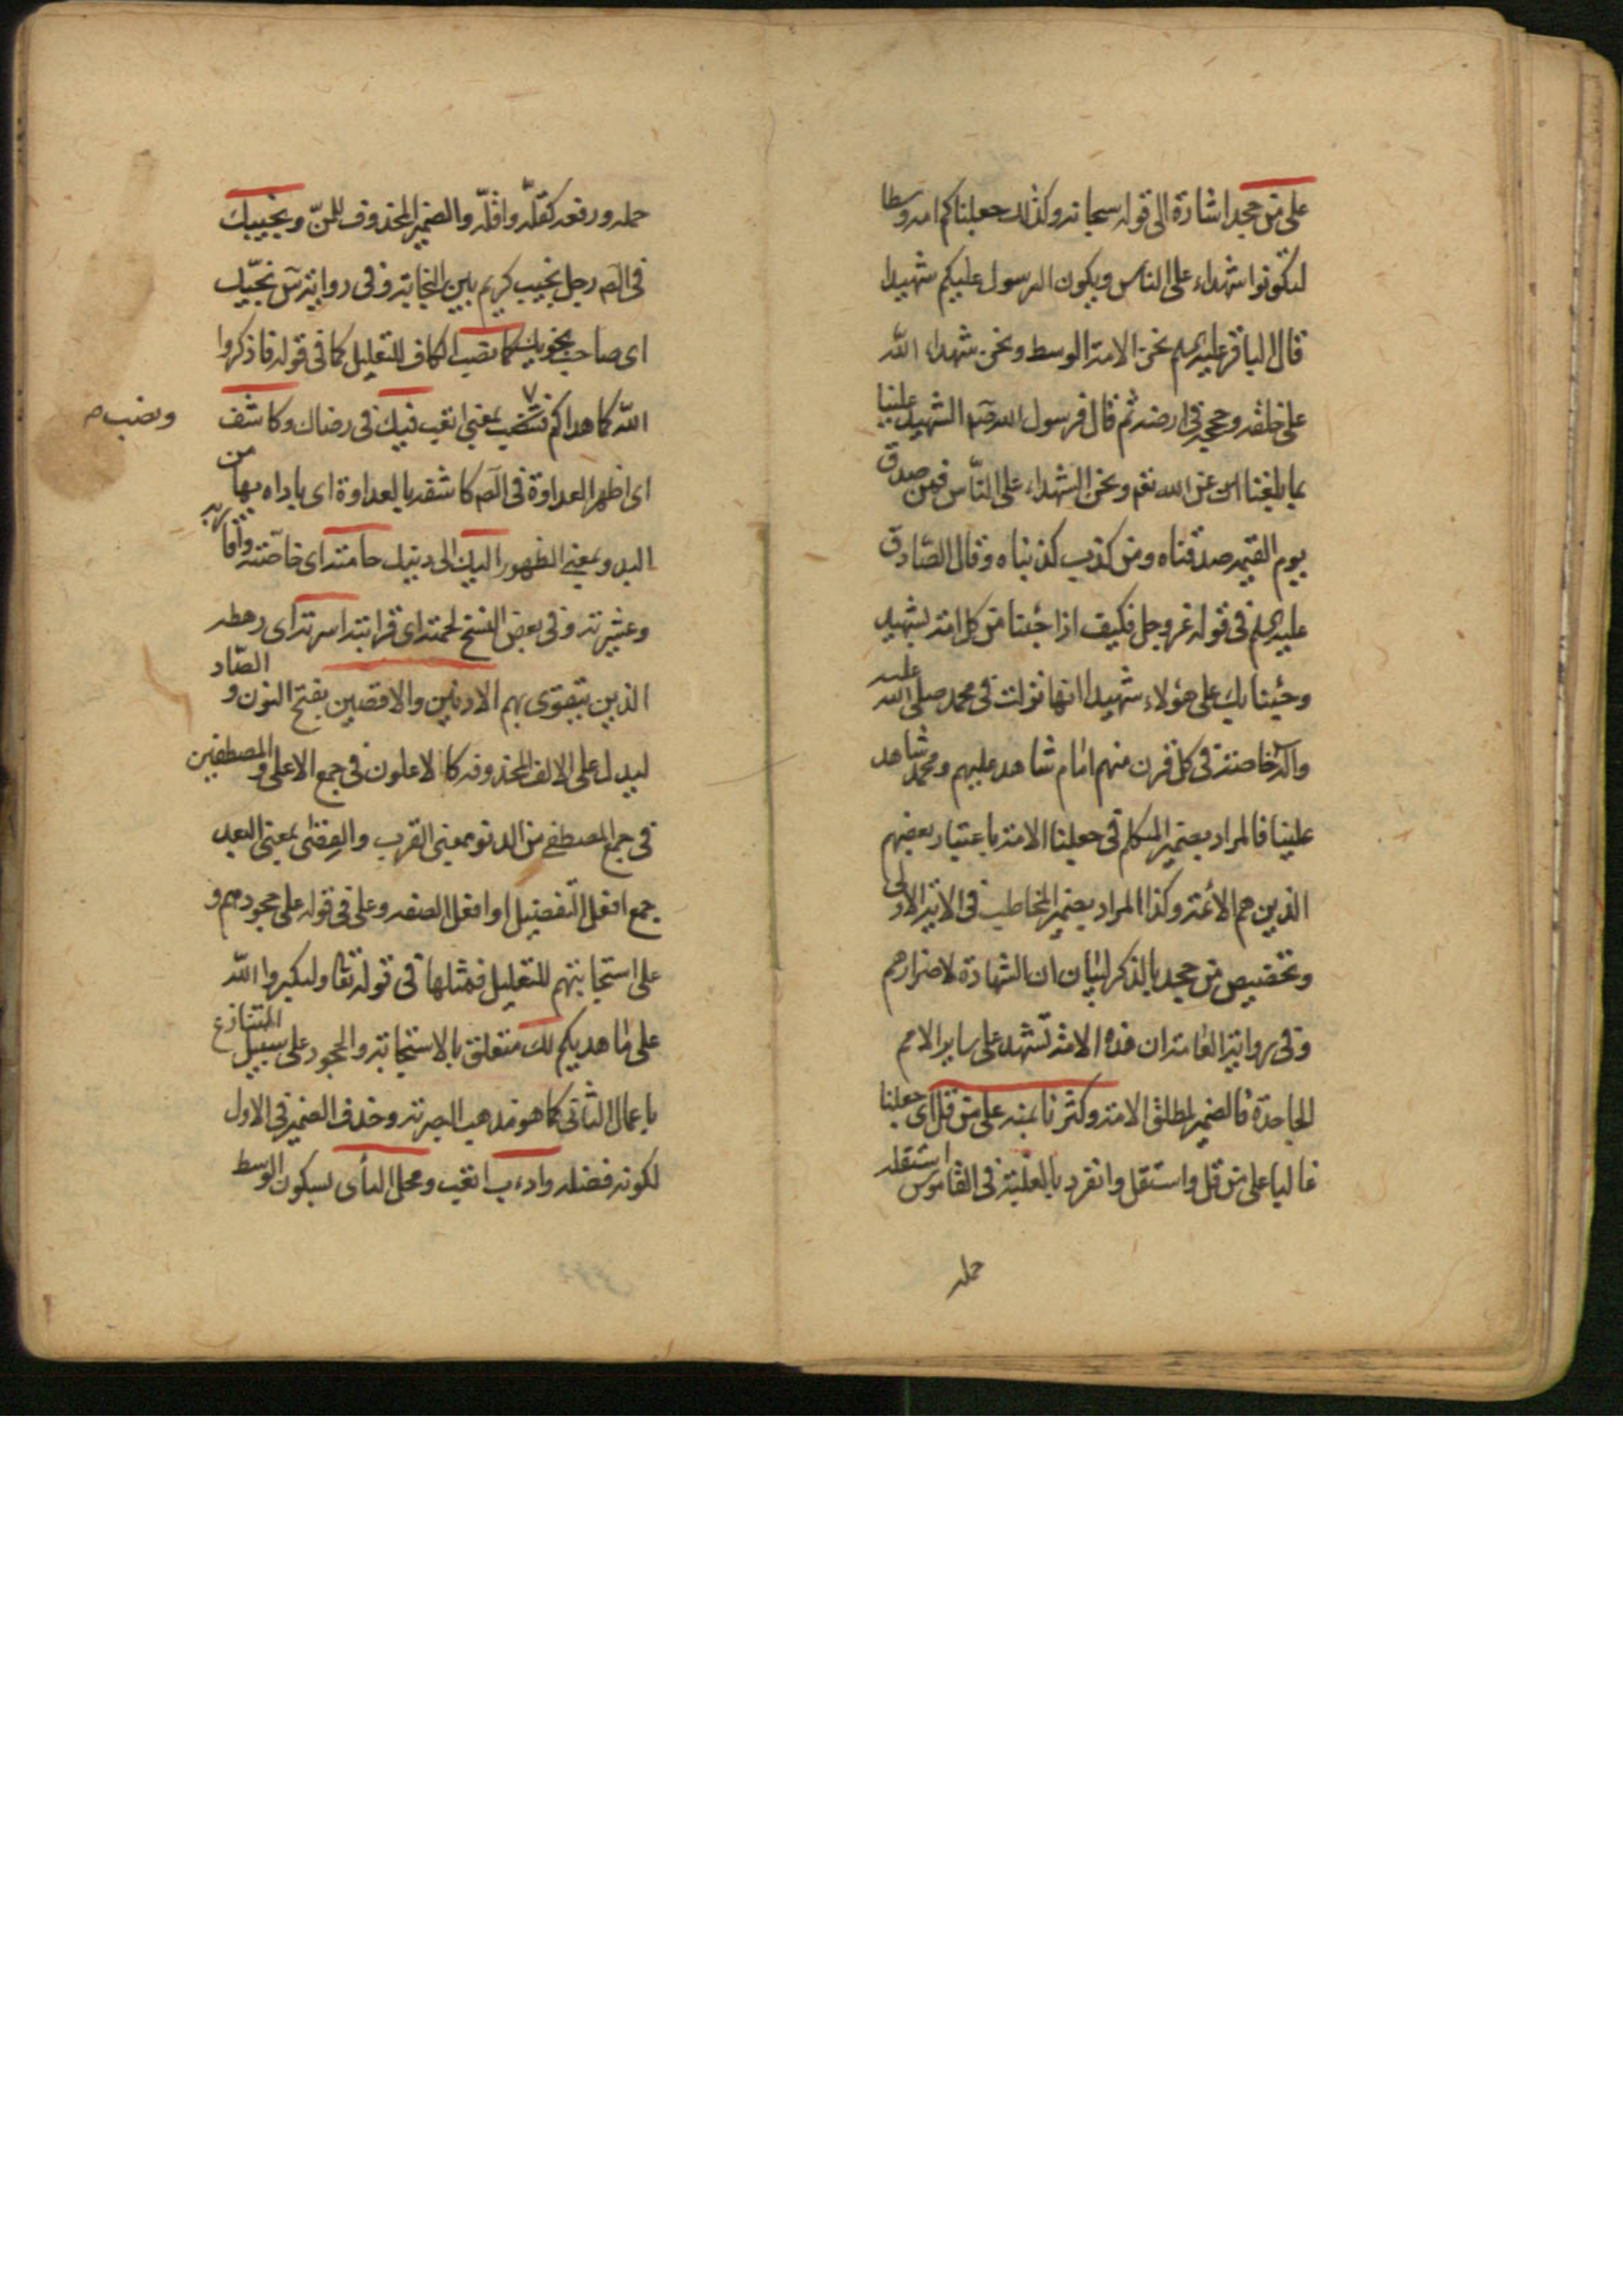 على من جحد اشارة الى قوله سبحانه وكذلك جعلناكم امة وسطا
لتكونوا شهداء على الناس ويكون الرسول عليكم شهيدا
قال الباقر عليه السلم نحن الامة الوسط ونحن شهداء الله
على خلقه وحججه فى ارضه ثم قال فرسول الله صم الشهيد علينا
بما بلغنا عن الله تعم ونحن الشهداء على النّاس فمن صدق
يوم القيمة صدقناه ومن كذب كذبناه وقال الصّادق
عليه السلم فى قوله عز وجل فكيف اذا جئنا من كل امة بشهيد
وجئنا بك على هؤلاء شهيدا انها نزلت فى محمد صلى الله عليه
واله خاصة فى كل قرن منهم امام شاهد عليهم ومحمد شاهد
علينا فالمراد بضمير المتكلم فى جعلنا الامة باعتبار بعضهم
الذين هم الأئمة وكذا المراد بضمير المخاطب فى الاية الاولى
وتخصيص من جحد بالذكر لبيان ان الشهادة لاضرارهم
وفى رواية العامة ان هذه الامة تشهد على ساير الامم
الجاحدة فالضمير لمطلق الامة وكثرنا بمنه على من قل اى جعلنا
غالبا على من قل واستقل وانفرد بالغلبة فى القاموس استقله
حمله
حمله ورفعه كقلّه واقلّه والضمير المحذوف للمنّ ونجيبك
فى الصم رجل نجيب كريم بين النجابة وفى رواية س نجيّك
اى صاحب نجويك كما نصب الكاف للتعليل كما فى قوله فاذكروا
الله كما هداكم ونصب بمعنى اتعب فيك فى رضاك وكاشف
ونصب م
اى اظهر العداوة فى الصم كاشفه بالعداوة اى باداه بها من
البدو بمعنى الظهور اليك الى دينك حامته اى خاصته واقاربه
وعشيرته وفى بعض النسخ لحمته اى قرابته اسرته اى رهطه
الذين يتقوى بهم الادنين والاقصين بفتح النون والصّاد
ليدل على الالف المحذوفة كالاعلون فى جمع الاعلى والمصطفين
فى جمع المصطفى من الدنو بمعنى القرب والقصى بمعنى البعد
جمع افعل التفضيل او افعل الصفة وعلى فى قوله على جحودهم و
على استجابتهم للتعليل فمثلها فى قوله تعا ولتكبروا الله
على ما هديكم لك متعلق بالاستجابة والجحود على سبيل التنازع
باعمال الثانى كما هو مذهب البصرة وحذف الضمير فى الاول
لكونه فضلة وادءب اتعب ومحل النأى بسكون الوسط